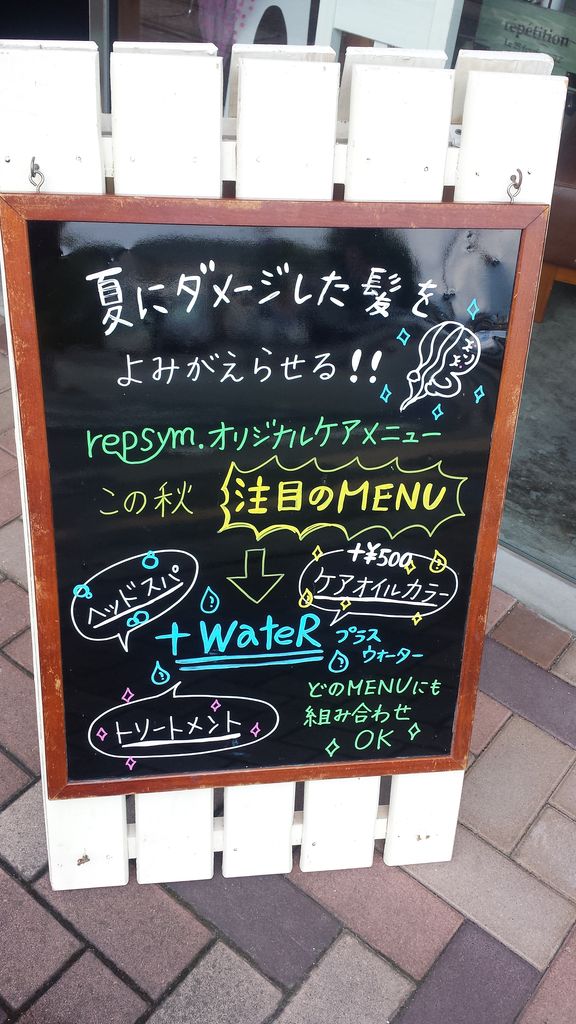 repetition
夏にダメージした髪を
よみがえらせる!!
repsym.オリジナルケアメニュー
この秋 注目のMENU
ヘッドスパ
+¥500
ケアオイルカラー
+WateR プラス
ウォーター
トリートメント
どのMENUにも
組み合わせ
OK